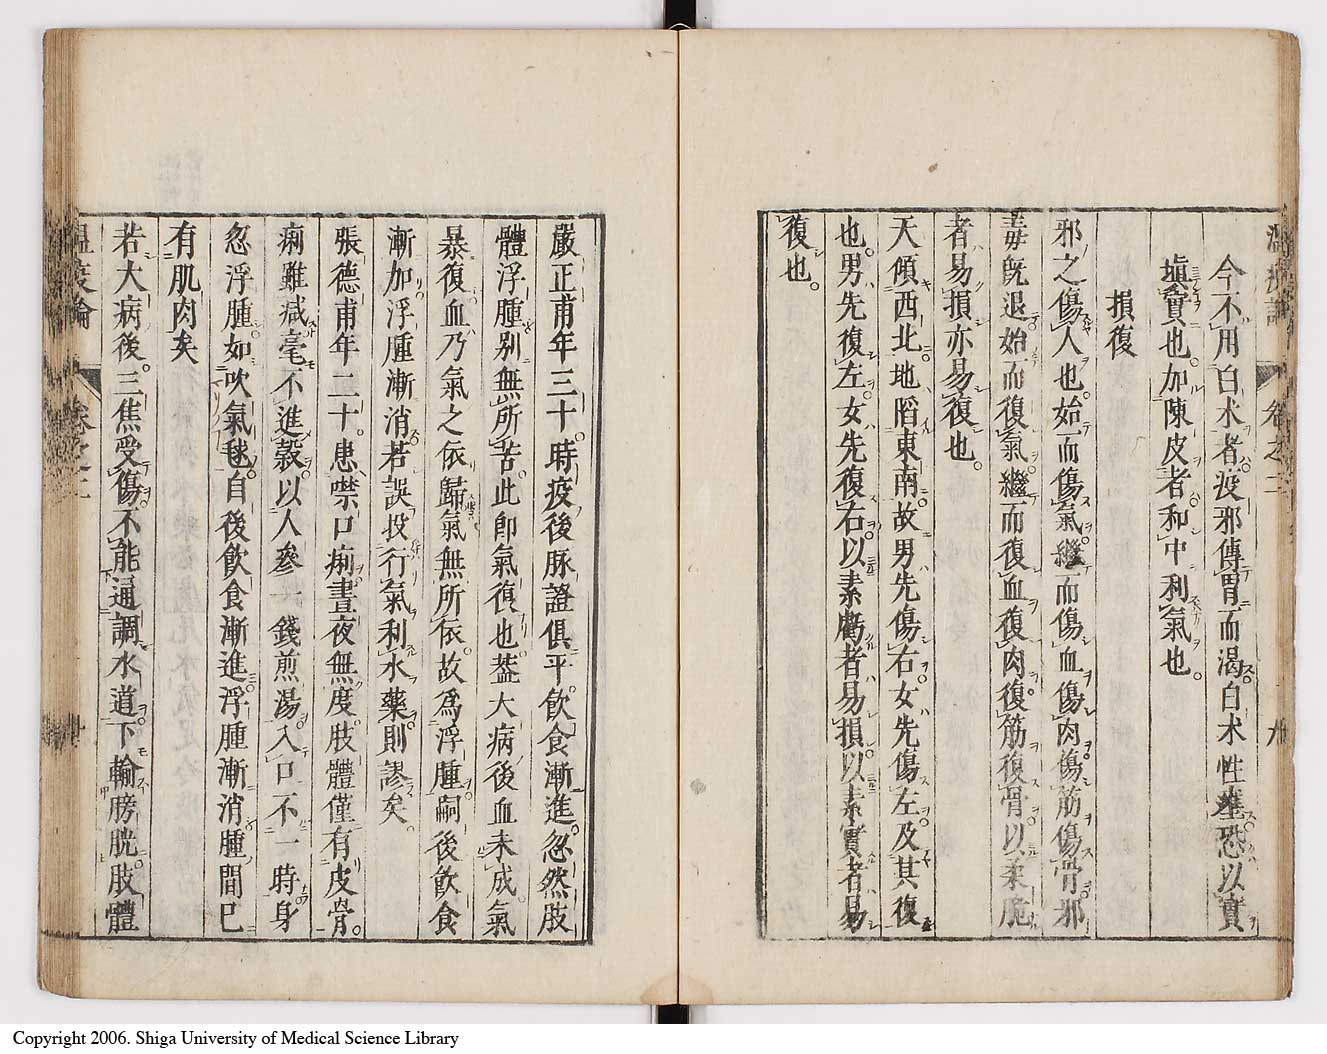 今不用白朮者疫邪傳胃而渴白朮性壅恐以實
塡實也加陳皮者和中利氣也
損復
邪之傷人也始而傷氣繼而傷血傷肉傷筋傷骨邪
毒既退始而復氣繼而復血復肉復筋復骨以柔脆
者易損亦易復也
天傾西北地陷東南故男先傷右女先傷左及其復
也男先復左女先復右以素虧者易損以素實者易
復也
嚴正甫年三十時疫後脉證俱平飮食漸進忽然肢
體浮腫别無所苦此卽氣復也葢大病後血未成氣
暴復血乃氣之依歸氣無所依故爲浮腫嗣後飮食
漸加浮腫漸消若誤投行氣利水藥則謬矣
張德甫年二十患噤口痢晝夜無度肢體僅有皮骨
痢雖减毫不進榖以人參一錢煎湯入口不一時身
忽浮腫如吹氣毬自後飮食漸進浮腫漸消腫間已
有肌肉矣
若大病後三焦受傷不能通調水道下輸膀胱肢體
溫疫論
卷之二
Copyright 2006. Shiga University of Medical Science Library